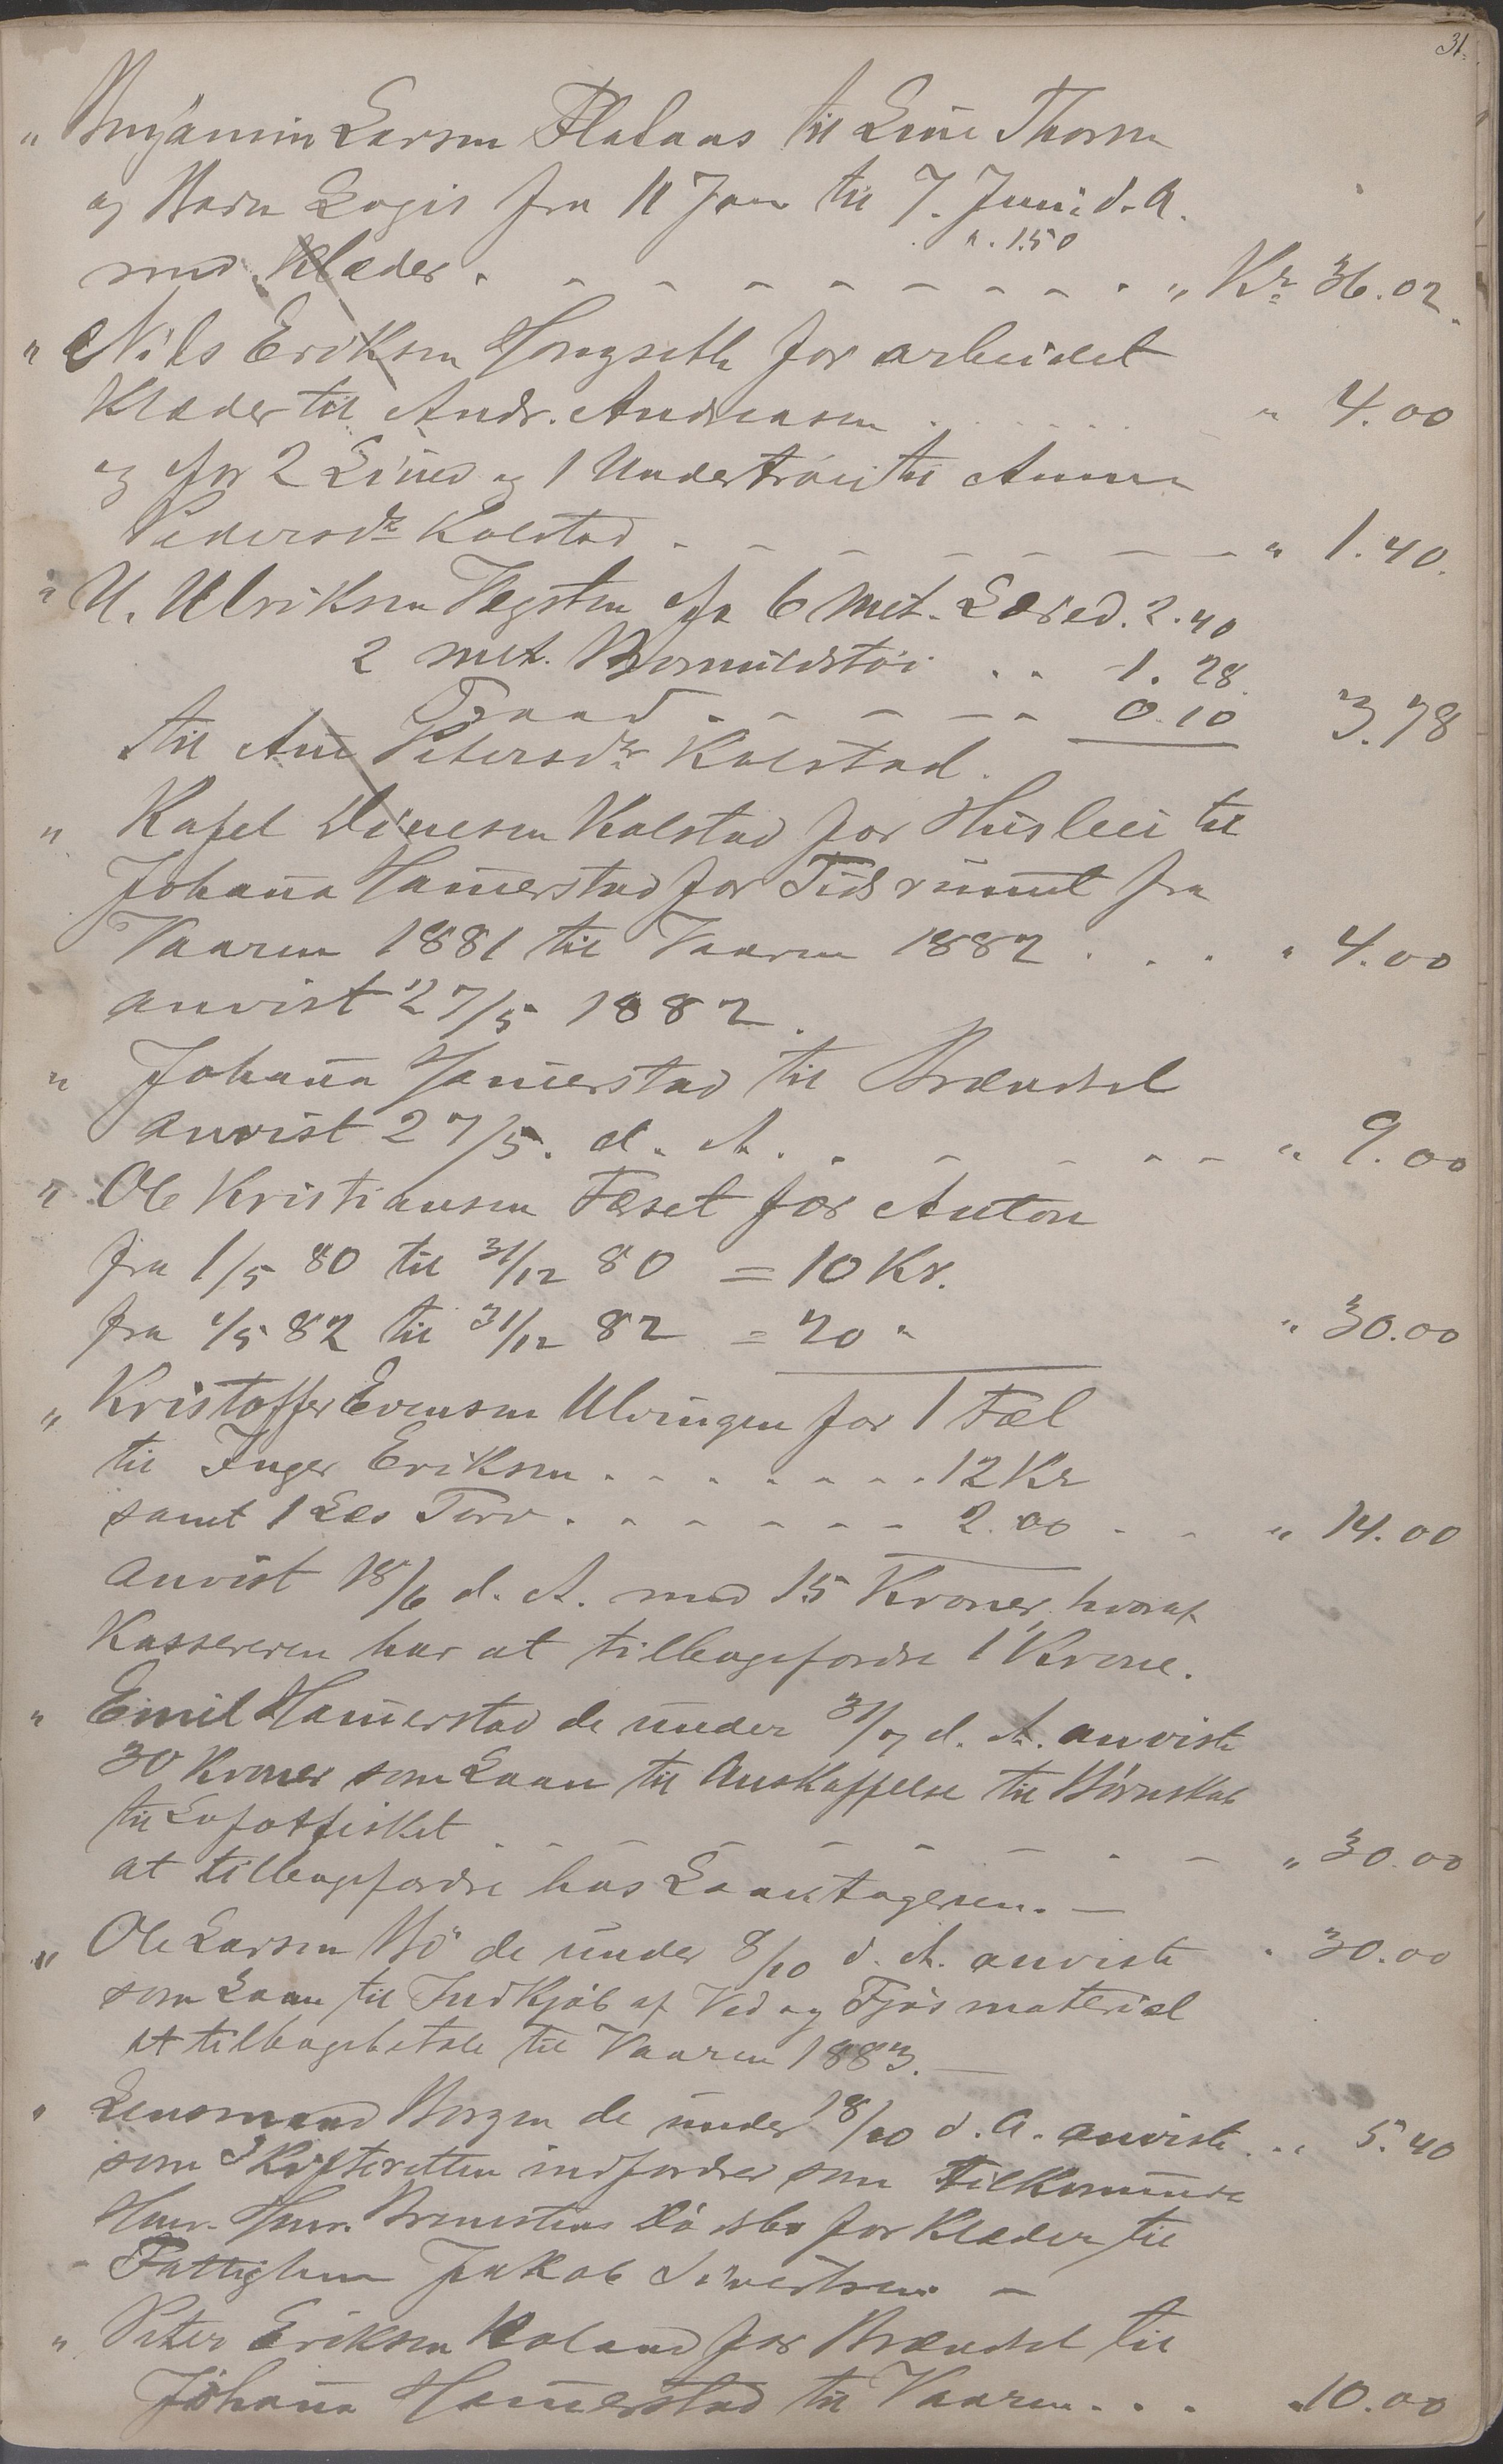 31.
" Benjamin Larsen Fladaas til Line Thorsen
og Barn Logis fra 11 Jan til 7. Juni d. A.
a. 1.50
med Klæder . - - - - - - - . „ Kr 36.02.
" Nils Eriksen Hongseth for arbeidet
Klæder til Andr. Andreasen . . . . . " 4.00
og for 2 Lined og 1 Undertrøie til Anna
Pedersdr Kolstad . - - - - - - - " 1.40.
" U. Ulriksen Vegsten for 6 met. Læred. 2.40
2 met. Bomuldstøi . . - 1. 28.
Traad . - - - - - 0.10 3.78
til Ane Petersdr Kolstad.
" Rafel Dinesen Kolstad for Husleie til
Johanna Hammerstad for Tidsrummet fra
Vaaren 1881 til Vaaren 1882 . . . " 4.00
anvist 27/5 1882.
" Johanna Hammerstad til Brændsel
anvist 27/5. d. A. . - - - - - " 9.00
" Ole Kristiansen Forset for Anton
fra 1/5 80 til 31/12 80 = 10 Kr.
fra 1/5 82 til 31/12 82 = 20 " " 30.00
" Kristoffer Evensen Ulvingen for 1 Fæl
til Inger Eriksen . - - . - - - . 12 Kr
samt 1 Læs Torv . - - - - - - 2.00 - - " 14.00
anvist 18/6 d. A. med 15 Kroner, hvoraf
Kassereren har at tilbagefordre 1 Krone.
" Emil Hammerstad de under 31/7 d. A. anviste
30 Kroner som Laan til Anskaffelse til Børnskab
til Lofotfisket . - - - - - - . - „ 30.00
at tilbagefordre hos Laantageren. -
" Ole Larsen Bø de under 8/10 d. A. anviste . 30.00
som Laan til Indkjøb af Ved og Fjøsmaterial
at tilbagebetale til Vaaren 1883. -
" Lensmand Borgen de under 18/10 d. A. anviste . . . 5.40
som Skifteretten indfordrer som Tilkommende
Henr. Henr. Dødsbo for Klæder til
Fattiglem Jakob Sivertsen -
" Peter Eriksen Roland for Brændsel til
Johanna Hammerstad til Vaaren . . . " 10.00